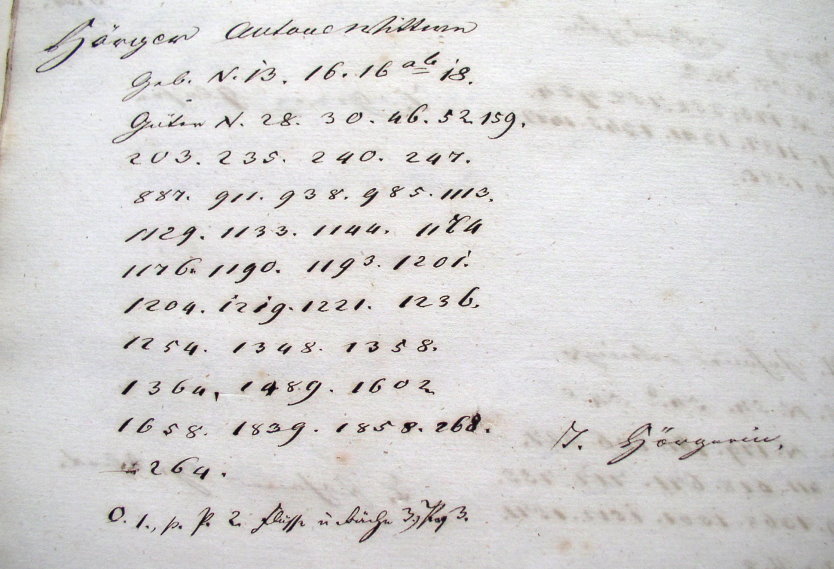 Hörger Antons Wittwe
Geb. N. 13. 16. 16 ab 18.
Güter N. 28. 30. 46. 52. 159.
203. 235. 240. 247.
887. 911. 938. 985. 1113.
1129. 1133. 1144. 1174
1176. 1190. 1193. 1201.
1204. 1219. 1221. 1236.
1254. 1348. 1358.
1364. 1489. 1602
1658. 1839. 1858. 268.
264.
O. 1., p. P. 2. Flüsse u Bäche 3,
J. Hörgerin.